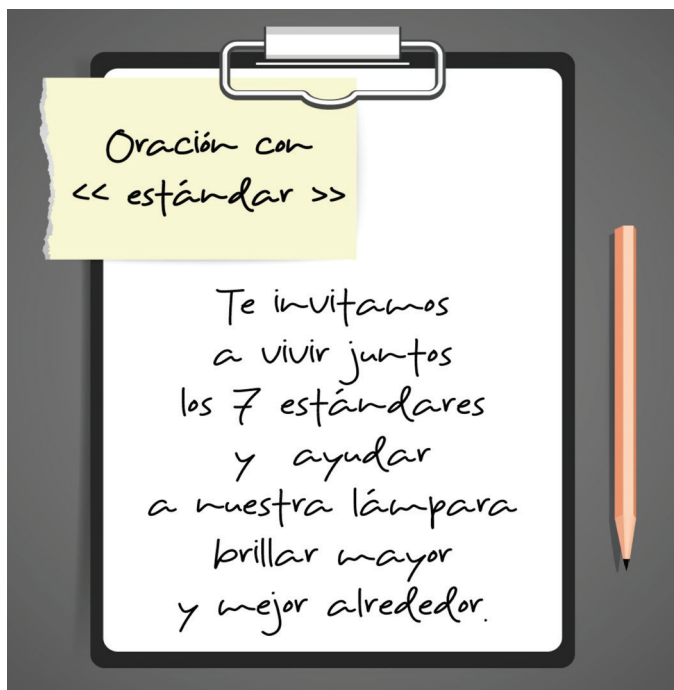 Oración con
<< estándar >>
Te invitamos
a vivir juntos
los 7 estándares
y ayudar
a nuestra lámpara
brillar mayor
y mejor alrededor.